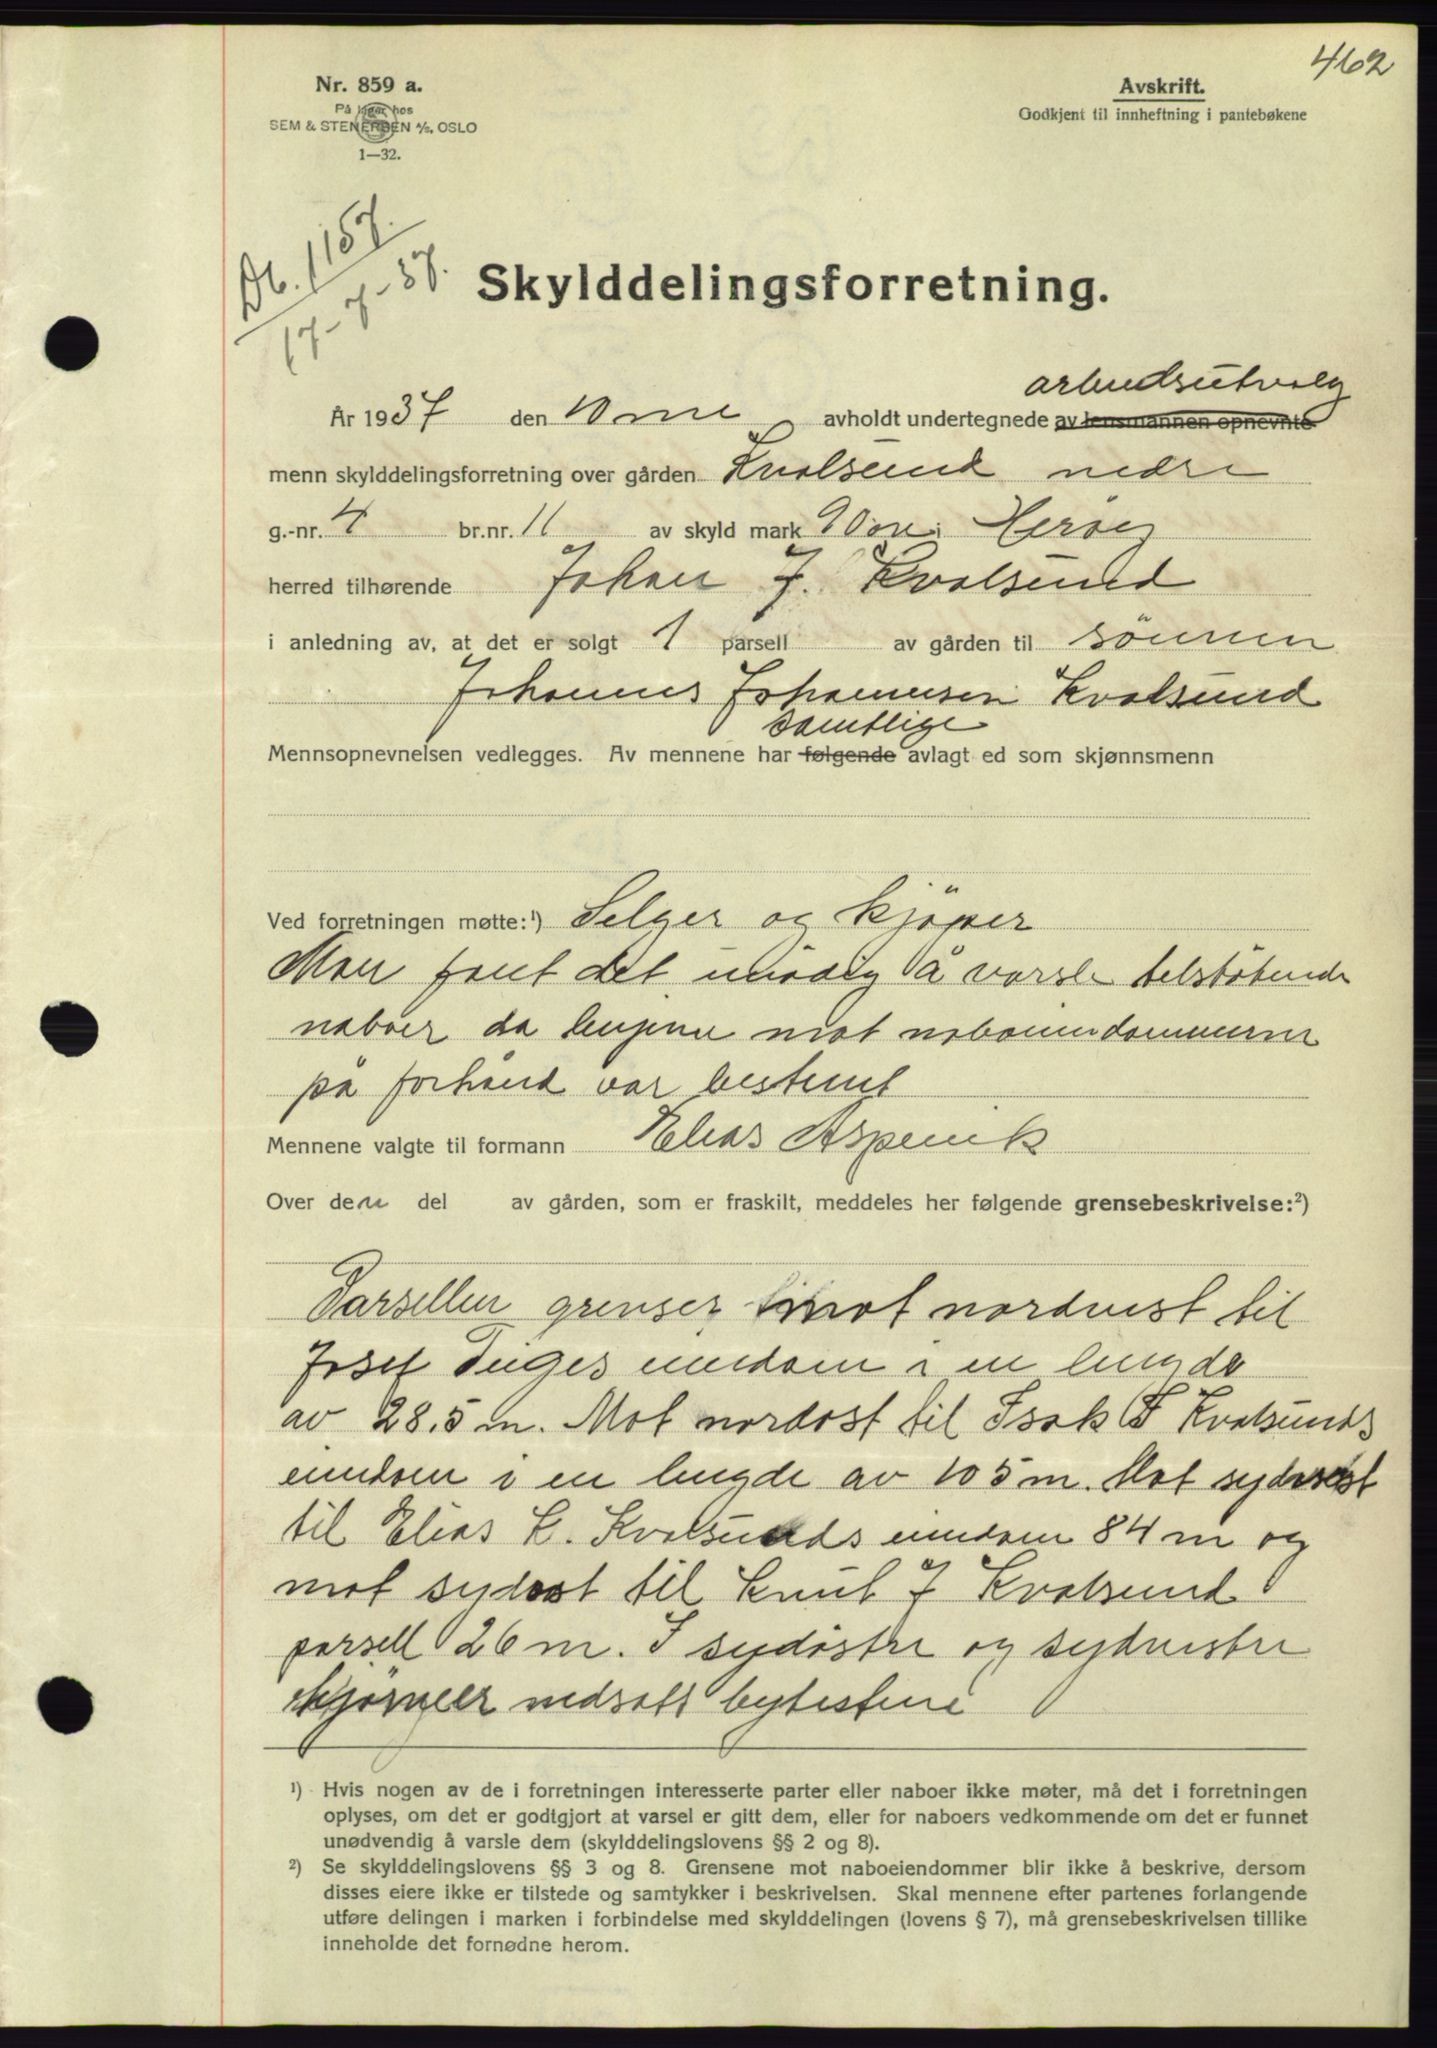 462
Nr. 859 a.
På lager hos
SEM & STENERSEN A/S, OSLO
1—32.
Avskrift.
Godkjent til innheftning i pantebøkene
Db. 1157.
17-7-37.
Skylddelingsforretning.
arbeidsutvalg
År 1937 den 10 mai avholdt undertegnede av lensmannen opnevnte
menn skylddelingsforretning over gården Kvalsund nedre
g.-nr. 4 br.nr. 11 av skyld mark 90 øre i Herøy
herred tilhørende Johan J. Kvalsund
i anledning av, at det er solgt 1 parsell av gården til sönnen
Johannes Johannesen Kvalsund
samtlige
Mennsopnevnelsen vedlegges. Av mennene har følgende avlagt ed som skjønnsmenn
Ved forretningen møtte:¹) Selger og kjöper
Man fant det unödig å varsle tilstötende
naboer da linjene mot naboeiendommene
på forhånd var bestemt
Mennene valgte til formann Elias Aspevik
Over den del av gården, som er fraskilt, meddeles her følgende grensebeskrivelse:²)
Parsellen grenser mot nordvest til
Josef Tuges eiendom i en lengde
av 28.5 m. Mot nordost til Isak F Kvalsunds
eiendom i en lengde av 105 m. Mot sydvest
til Elias K. Kvalsunds eiendom 84 m og
mot sydost til Knut J Kvalsund
parsell 26 m. I sydöstre og sydvestre
hjörner nedsatt bytestene
¹) Hvis nogen av de i forretningen interesserte parter eller naboer ikke møter, må det i forretningen
oplyses, om det er godtgjort at varsel er gitt dem, eller for naboers vedkommende om det er funnet
unødvendig å varsle dem (skylddelingslovens §§ 2 og 8).
²) Se skylddelingslovens §§ 3 og 8. Grensene mot naboeiendommer blir ikke å beskrive, dersom
disses eiere ikke er tilstede og samtykker i beskrivelsen. Skal mennene efter partenes forlangende
utføre delingen i marken i forbindelse med skylddelingen (lovens § 7), må grensebeskrivelsen tillike
inneholde det fornødne herom.